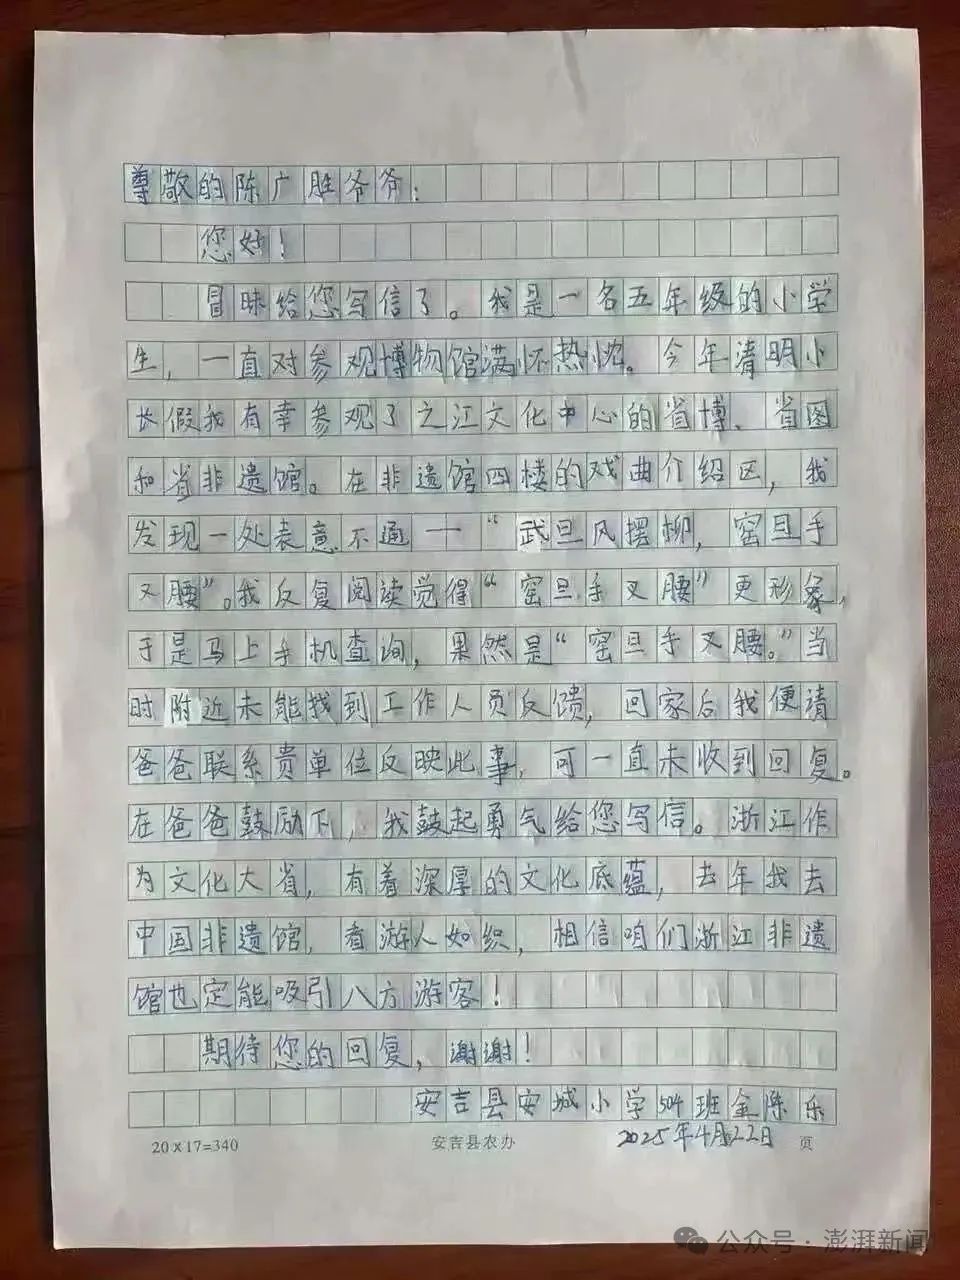 尊敬的陈广胜爷爷：
您好！
冒昧给您写信了。我是一名五年级的小学
生，一直对参观博物馆满怀热忱。今年清明小
长假我有幸参观了之江文化中心的省博、省图
和省非遗馆。在非遗馆四楼的戏曲介绍区，我
发现一处表意不通——“武旦风摆柳，窑旦手
又腰”。我反复阅读觉得“窑旦手叉腰”更形象，
于是马上手机查询，果然是“窑旦手叉腰。”当
时附近未能找到工作人员反馈，回家后我便请
爸爸联系贵单位反映此事，可一直未收到回复。
在爸爸鼓励下，我鼓起勇气给您写信。浙江作
为文化大省，有着深厚的文化底蕴，去年我去
中国非遗馆，看游人如织，相信咱们浙江非遗
馆也定能吸引八方游客！
期待您的回复，谢谢！
安吉县安城小学504班金陈乐
20×17=340 安吉县农办 2025年4月22日 页
公众号·澎湃新闻